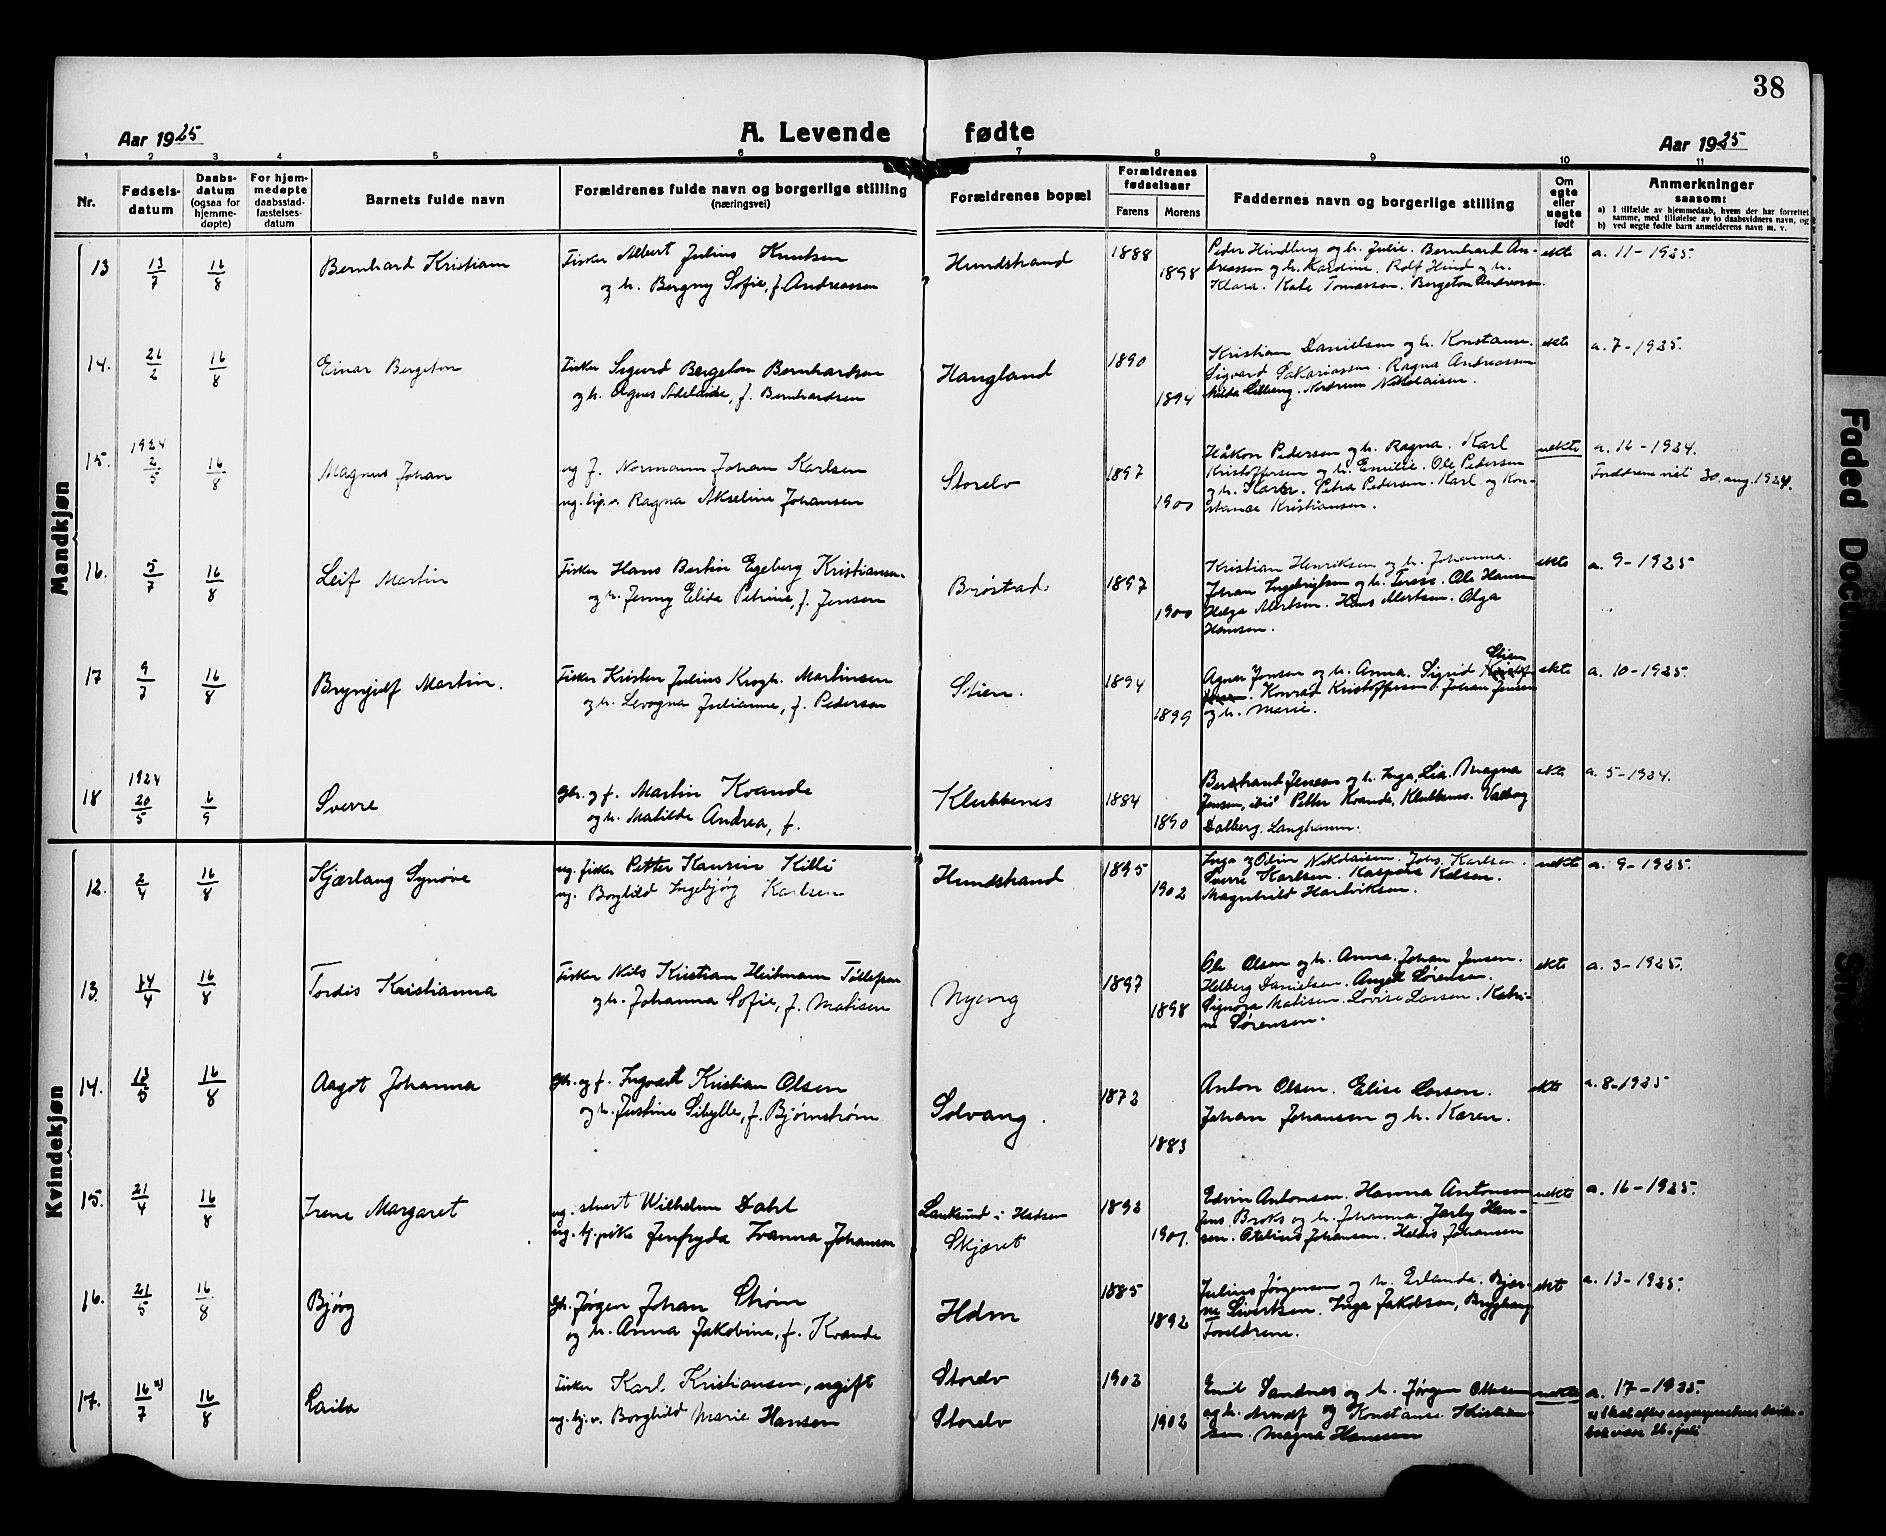 38
Aar 1925
A. Levende fødte
Aar 1925
1 2 3 4 5 6 7 8 9 10 11
Nr.
Fødsels-
datum
Daabs-
datum
(ogsaa for
hjemme-
døpte)
For hjem-
medøpte
daabsstad-
fæstelses-
datum
Barnets fulde navn
Forældrenes fulde navn og borgerlige stilling
(næringsvei)
Forældrenes bopæl
Forældrenes
fødselsaar
Farens Morens
Faddernes navn og borgerlige stilling
Om
egte
eller
uegte
født
Anmerkninger
saasom:
a) I tilfælde av hjemmedaab, hvem der har forrettet
samme, med tilføielse av to daabsvidners navn, og
b) ved uegte fødte barn anmelderens navn m. v.
Mandkjøn
13 13/7 16/8 Bernhard Kristian
Fisker Albert Julius Knutsen
og h. Bergny Sofie, f. Andreassen
Hundstrand 1888 1898
Peder Hindberg og h. Julie. Bernhard An-
dreassen og h. Kardine. Rolf Hind og h.
Klara. Kate Tomassen. Bergeton Andreassen.
ekte a. 11 - 1925.
14. 16/8 Einar Bergeton
Fisker Sigurd Bergeton Bernhardsen
og h. Agnes Adelaide, f. Bernhardsen
Haugland 1890 1894
Kristian Danielsen og h. Konstanse.
Sigvard Sakariassen. Ragna Andreassen
Nikolaisen.
ekte a. 7 - 1925.
15. 1924 2/5 16/8 Magnus Johan
ug f. Normann Johan Karlsen
ug. Ragna Akseline Johansen
Storelv 1897 1900
Håkon Pedersen og h. Ragna. Karl
Kristoffersen og h. Emilie. Ole Pedersen
og h. Petra Pedersen. Karl og Kon-
stance Kristiansen.
uekte a. 16 - 1924.
Foreldrene viet 30. aug. 1924.
16. 5/7 16/8 Leif Martin
Fisker Hans Bertin Egeberg Kristiansen.
og h. Jenny Elida Petrine, f. Jensen
Brøstad 1897 1900
Kristian Henriksen og h. Johanna.
Johan Ingebrigtsen og h. Terese. Ole Hansen
Helga Mortsen. Hans Mortsen. Olga
Hansen.
ekte a. 9 - 1925
17 9/7 16/8 Brynjulf Martin.
Fisker Kristen Julius Krogh. Martinsen
og h. Levogna Julianne, f. Pedersen
Stien. 1894 1899
Stien
Agnar Jonsen og h. Anna. Sigrid
Konrad Kristoffersen. Johan Jensen
og h. Marie.
ekte a. 10 - 1925.
18 1924 20/5 6/9 Sverre
gbr. og f. Martin Kvande
og h. Matilde Andrea, f.
Klubbenes 1884 1890
Jensen og h. Inga, Lia. Magna
Jensen, Petter Kvande, Klubbenes. Valborg
Dalberg, Langhamn.
ekte a. 5 - 1924.
Kvindekjøn
12. 2/4 16/8 Kjærlang Synøve
ug. fisker Petter Kaurin Killi
ug. Borghild Ingebjørg Karlsen
Hundstrand 1895 1902
Inga og Odin Nikolaisen. Johs. Karlsen.
Sverre Karlsen. Kaspara
Magnhild Hartviksen.
uekte a. 9 - 1925.
13. 14/4 16/8 Tordis Kristianna
Fisker Nils Kristian Heitmann Tollefsen
og h. Johanna Sofie, f. Matisen
Nyeng 1897 1898
Ole Olsen og h. Anna. Johan Jensen.
Helberg Danielsen. Sørensen.
Signora Matisen. Lovise Larsen. Katri-
ne Sørensen.
ekte a. 3 - 1925.
14. 13/5 16/8 Aagot Johanna
gbr. og f. Ingvart Kristian Olsen
og h. Justine Sibylle, f. Bjørnstrøm
Solvang. 1872 1883
Anton Olsen. Elise Larsen.
Johan Johansen og h. Karen.
ekte a. 8 - 1925
15. 21/4 16/8 Irene Margaret
ug. stuert Wilhelm Dahl
ug. tj.pike Jenfryda Ivanna Johansen
Lauksund i Hadsen
Skjæret 1893 1901.
Edvin Antonsen. Hanna Antonsen
Jens Broks og h. Johanna. Jarly Han-
sen. Johansen. Haldis Johansen
uekte a. 16 - 1925.
16. 21/5 16/8 Bjørg
gb. Jørgen Johan Strøm
og h. Anna Jakobine, f. Kvande
Hdm 1885 1892
Julius Jørgensen og h. Erlanda. Bjar-
ne Sivertsen. Inga Jakobsen, Brygghaug
Foreldrene.
ekte a. 13 - 1925.
17. 16/7 x) 16/8 Laila
Fisker Karl Kristiansen, ugift
ug. tj. v. Borghild Marie Hansen
Storelv
Storelv 1902 1902
Emil Sandnes og h. Jørgen Ottesen
og h. Arnulf og Konstanse Kristian-
sen. Magna Hanssen
uekte a. 17 - 1925.
x) Skal efter
bok være 26. juli
Faded Docu